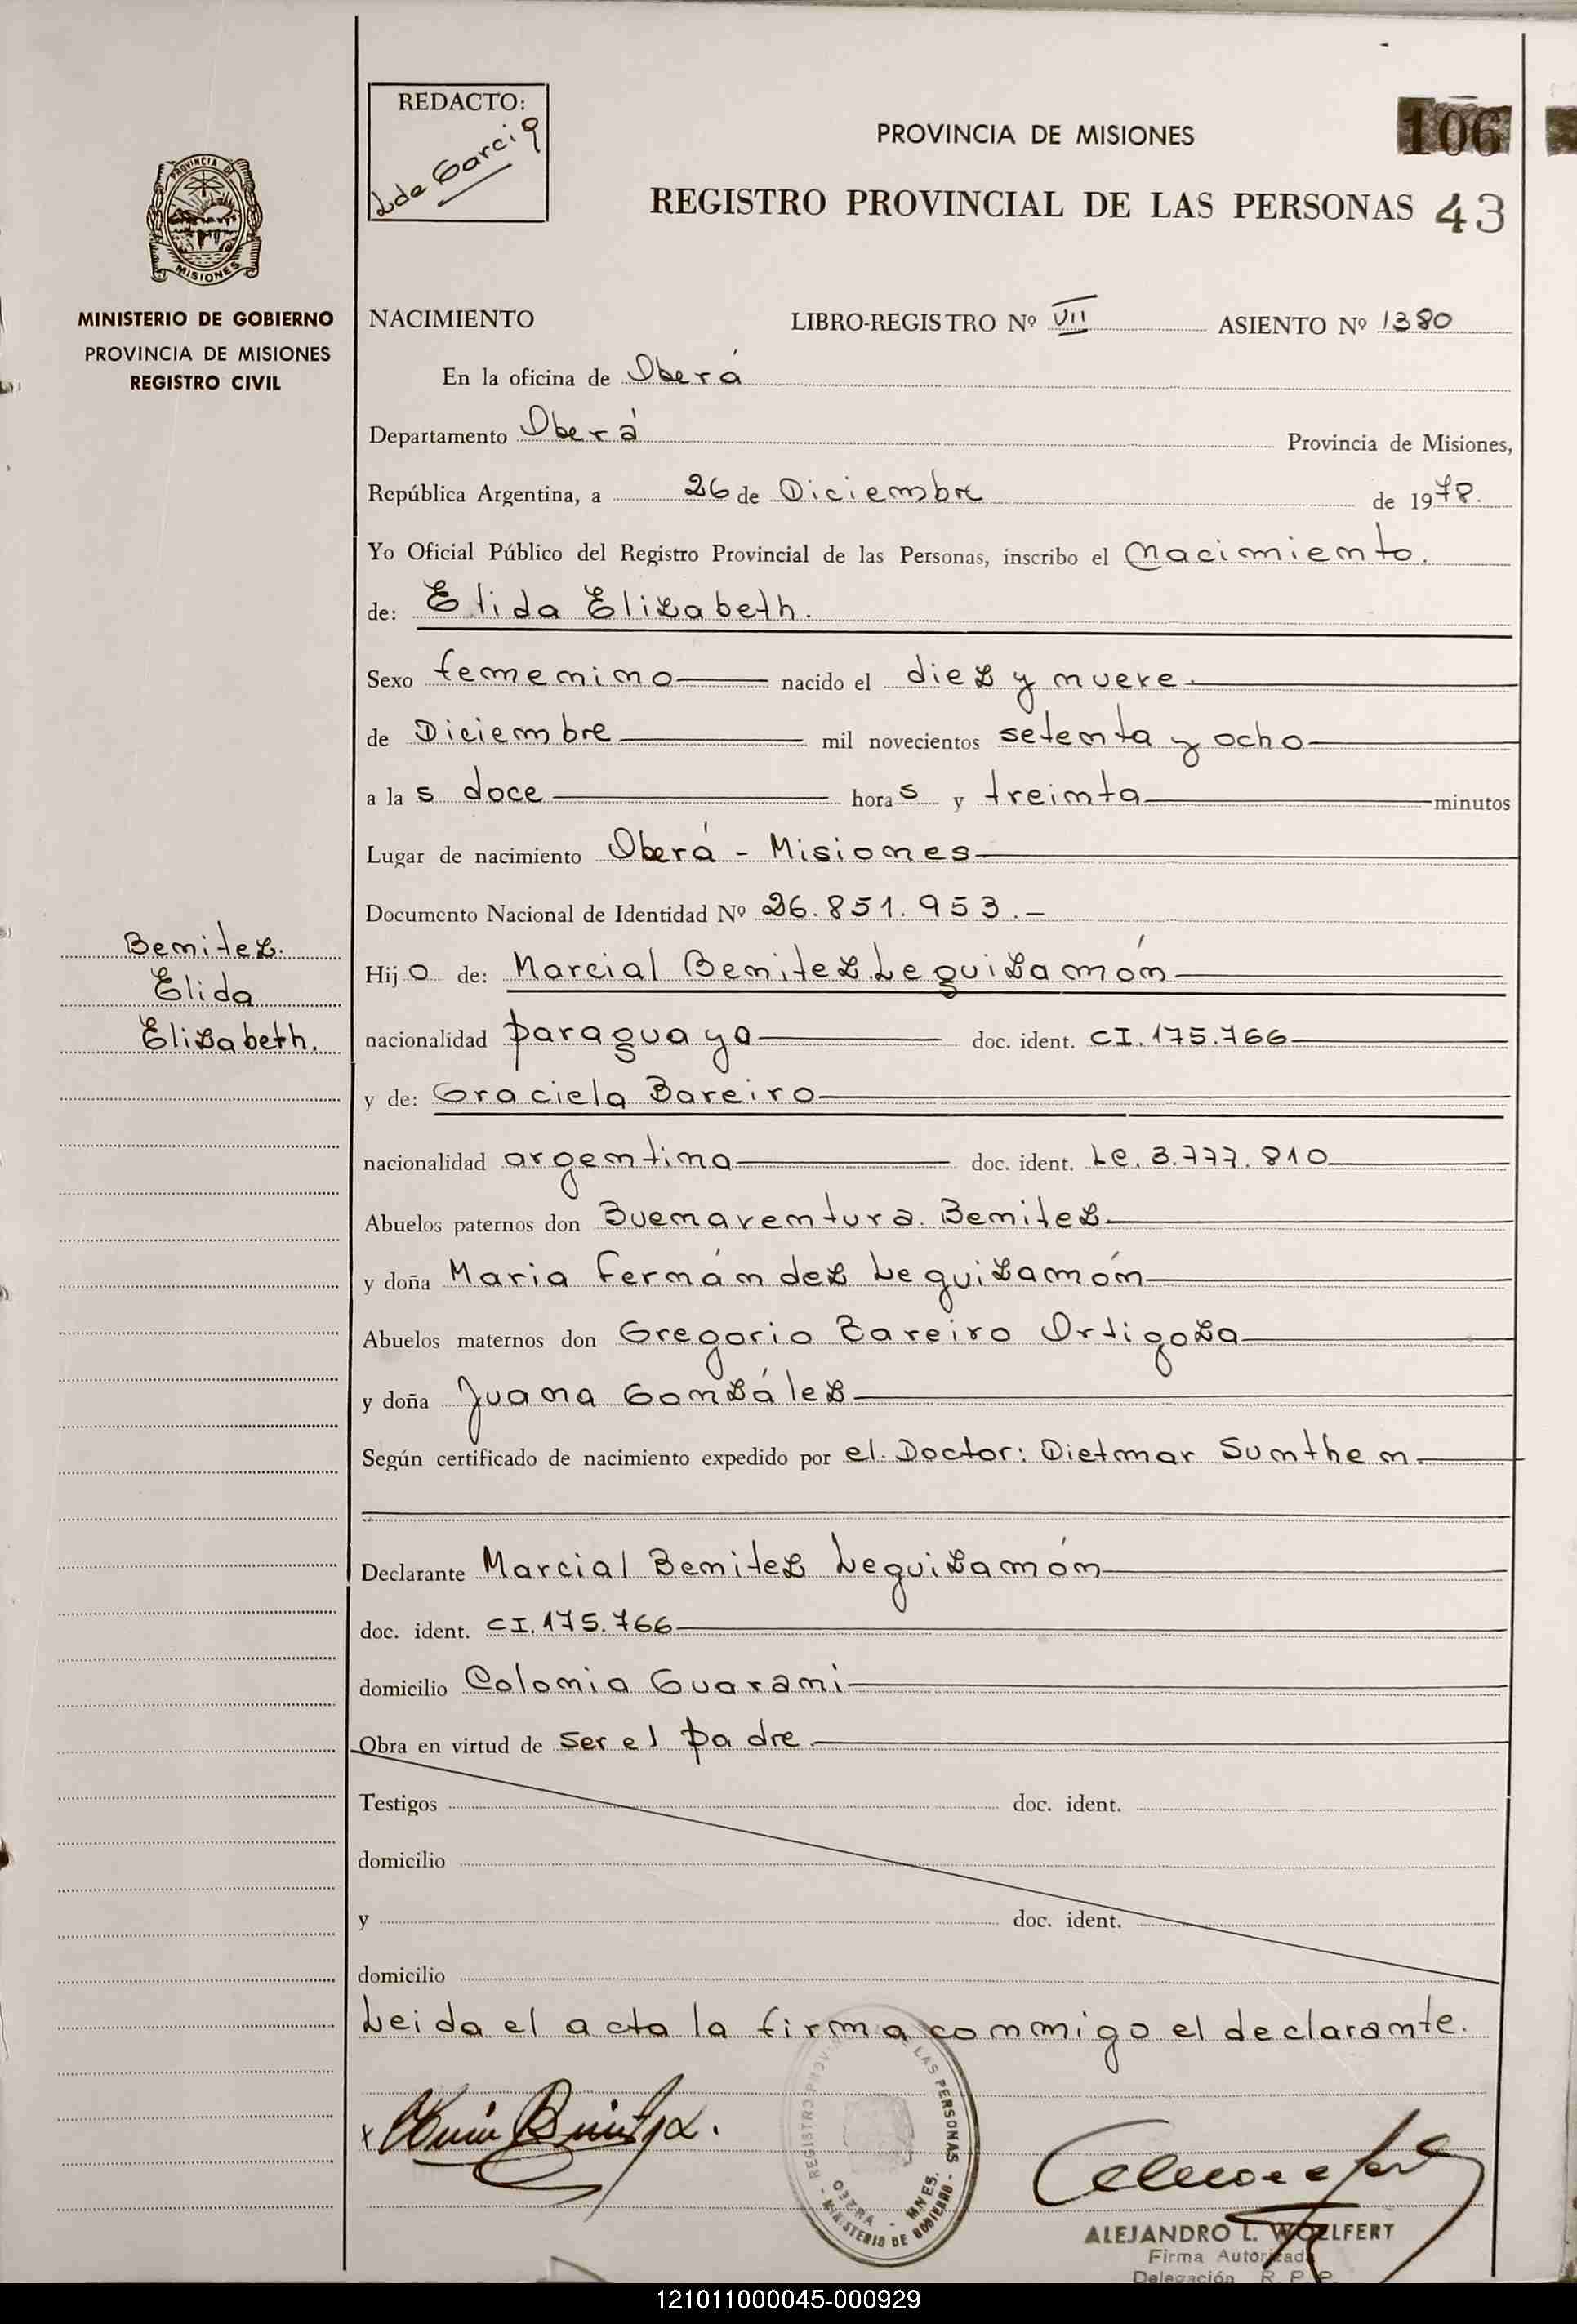 REDACTO:
Lda Garcia
106
PROVINCIA DE MISIONES
REGISTRO PROVINCIAL DE LAS PERSONAS 43
PROVINCIA DE
MISIONES
MINISTERIO DE GOBIERNO
PROVINCIA DE MISIONES
REGISTRO CIVIL
NACIMIENTO LIBRO-REGISTRO Nº VII ASIENTO Nº 1380
En la oficina de Oberá
Departamento Oberá Provincia de Misiones,
República Argentina, a 26 de Diciembre de 1978.
Yo Oficial Público del Registro Provincial de las Personas, inscribo el Nacimiento.
de: Elida Elizabeth.
Sexo femenino nacido el diez y nueve.
de Diciembre mil novecientos setenta y ocho
a la s doce hora s y treinta minutos
Lugar de nacimiento Oberá - Misiones
Documento Nacional de Identidad Nº 26.851.953.-
Benitez.
Elida
Elizabeth.
Hij o de: Marcial Benitez Leguizamón
nacionalidad paraguaya doc. ident. CI.175.766
y de: Graciela Bareiro
nacionalidad argentina doc. ident. Lc. 3.777.810
Abuelos paternos don Buenaventura Benitez
y doña Maria Fernández Leguizamón
Abuelos maternos don Gregorio Bareiro Ortigoza
y doña Juana González
Según certificado de nacimiento expedido por el Doctor: Dietmar Sunthen.
Declarante Marcial Benitez Leguizamón
doc. ident. CI.175.766
domicilio Colonia Guarani
Obra en virtud de ser el padre
Testigos doc. ident.
domicilio
y doc. ident.
domicilio
Leida el acta la firma conmigo el declarante.
REGISTRO PROV LAS PERSONAS
OBERA - MNES.
MINISTERIO DE GOBIERNO
ALEJANDRO L. WOELFERT
Firma Autorizada
Delegación R. P. P.
121011000045-000929